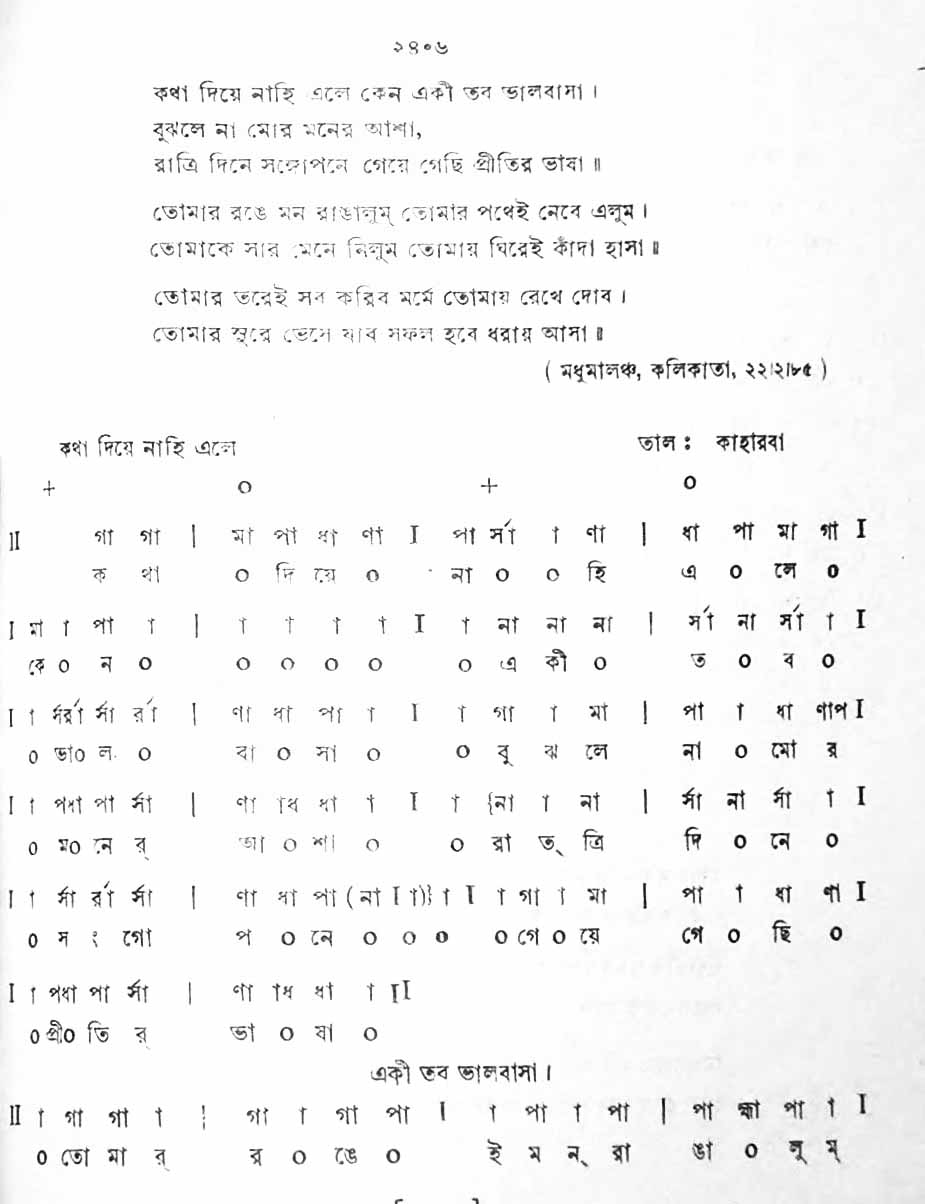 ২৪০৬
কথা দিয়ে নাহি এলে কেন একী তব ভালবাসা।
বুঝলে না মোর মনের আশা,
রাত্রি দিনে সঙ্গোপনে গেয়ে গেছি প্রীতির ভাষা॥
তোমার রঙে মন রাঙালুম্ তোমার পথেই নেবে এলুম।
তোমাকে সার মেনে নিলুম তোমায় ঘিরেই কাঁদা হাসা॥
তোমার তরেই সব করিব মর্মে তোমায় রেখে দোব।
তোমার সুরে ভেসে যাব সফল হবে ধরায় আসা॥
( মধুমালঞ্চ, কলিকাতা, ২২।২।৮৫ )
কথা দিয়ে নাহি এলে তাল : কাহারবা
+ ০ + ০
II গা গা | মা পা ধা ণা I পা র্সা া ণা | ধা পা মা গা I
ক থা ০ দি য়ে ০ না ০ ০ হি এ ০ লে ০
I মা া পা া | া া া া I া না না না | র্সা না র্সা া I
কে ০ ন ০ ০ ০ ০ ০ ০ এ কী ০ ত ০ ব ০
I া র্সর্রা র্সা র্রা | ণা ধা পা া I া গা া মা | পা া ধা ণাপ I
০ ভা০ ল ০ বা ০ সা ০ ০ বু ঝ লে না ০ মো র
I া পধা পা র্সা | ণা াধ ধা া I া {না া না | র্সা না র্সা া I
০ ম০ নে র্ আ ০ শা ০ ০ রা ত্ ত্রি দি ০ নে ০
I া র্সা র্রা র্সা | ণা ধা পা (না I া)} া I া গা া মা | পা া ধা ণা I
০ স ং গো প ০ নে ০ ০ ০ ০ গে ০ য়ে গে ০ ছি ০
I া পধা পা র্সা | ণা াধ ধা া II
০ প্রী০ তি র্ ভা ০ ষা ০
একী তব ভালবাসা।
II া গা গা া | গা া গা পা I া পা া পা | পা হ্মা পা া I
০ তো মা র্ র ০ ঙে ০ ই ম ন্ রা ঙা ০ লু ম্